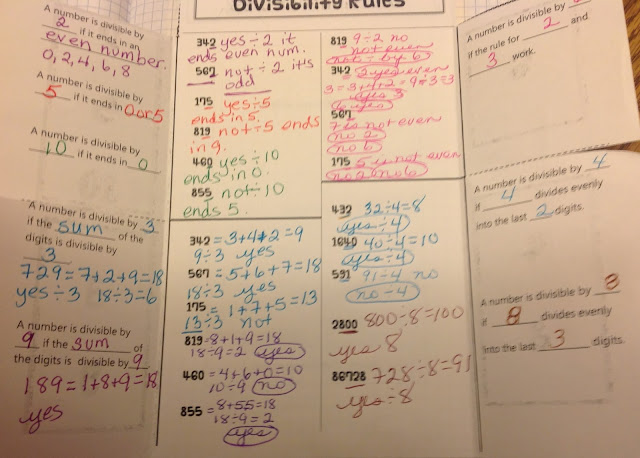 Divisibility Rules
A number is divisible by
2 if it ends in an
even number.
0, 2, 4, 6, 8
A number is divisible by
5 if it ends in 0 or 5
A number is divisible by
10 if it ends in 0
A number is divisible by 3
if the sum of the
digits is divisible by
3
729 = 7+2+9 = 18
yes ÷ 3 18÷3=6
A number is divisible by
9 if the sum of
the digits is divisible by 9
189 = 1+8+9 = 18
yes
342 yes ÷ 2 it
ends even num.
567 not ÷ 2 it's
odd
175 yes ÷ 5
ends in 5.
819 not ÷ 5 ends
in 9.
460 yes ÷ 10
ends in 0.
855 not ÷ 10
ends 5.
342 = 3+4+2 = 9
9÷3 yes
567 = 5+6+7 = 18
18÷3 yes
175 = 1+7+5 = 13
13÷3 not
819 = 8+1+9 = 18
18÷9=2 yes
460 = 4+6+0=10
10÷9 no
855 = 8+55=18
18÷9=2
yes
819 9÷2 no
not even
not ÷ by 6
342 2 yes even
3=3+4+2=9÷3=3
yes 3
6 yes
567
7 is not even
no 2
no 6
175 5 is not even
no 2 no 6
432 32÷4=8
yes ÷ 4
1640 40÷4=10
yes ÷ 4
591 91÷4 no
no ÷ 4
2800 800÷8=100
yes 8
86728 728÷8=91
yes ÷ 8
A number is divisible by
if the rule for 2 and
3 work.
A number is divisible by 4
if 4 divides evenly
into the last 2 digits.
A number is divisible by 8
if 8 divides evenly
into the last 3 digits.